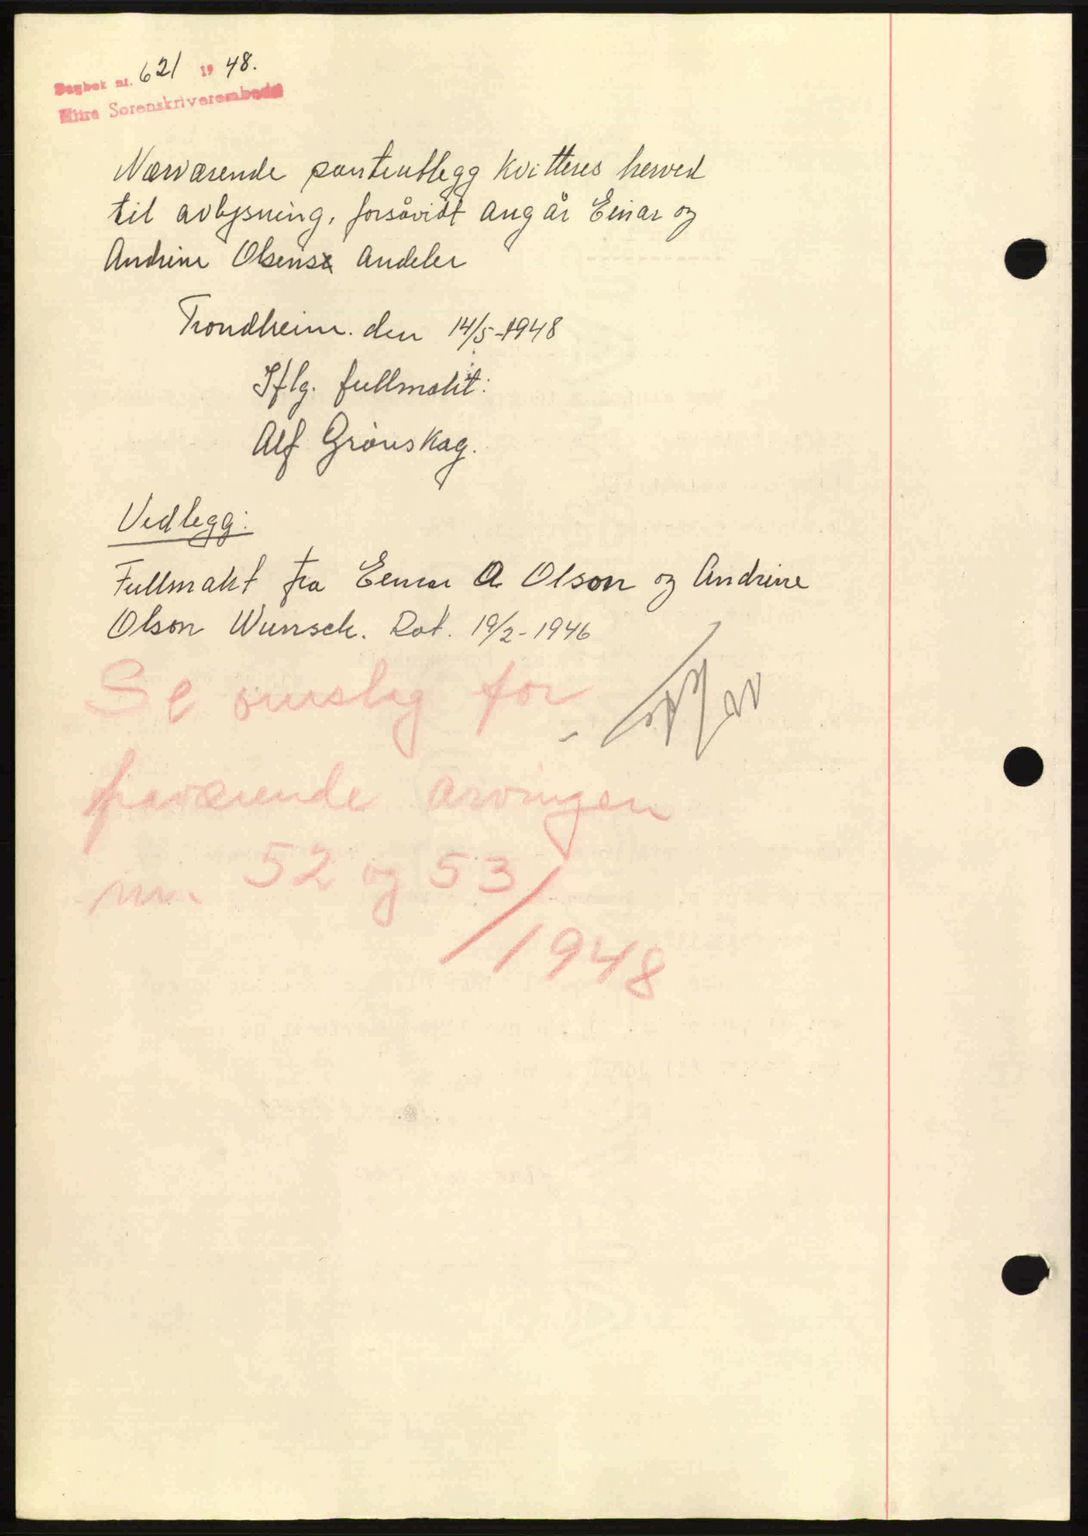 Dagbok nr. 621 1948.
Hitra Sorenskriverembede
Nærværende pantutlegg kvitteres herved
til avlysning, forsåvidt angår Einar og
Andrine Olsens andeler
Trondheim. den 14/5-1948
Iflg. fullmakt:
Alf Grønskag.
Vedlegg:
Fullmakt fra Einar A Olson og Andrine
Olson Wunsch. Dat. 19/2-1946
Se omslag for
fraværende arvingen
nr. 52 og 53/
1948